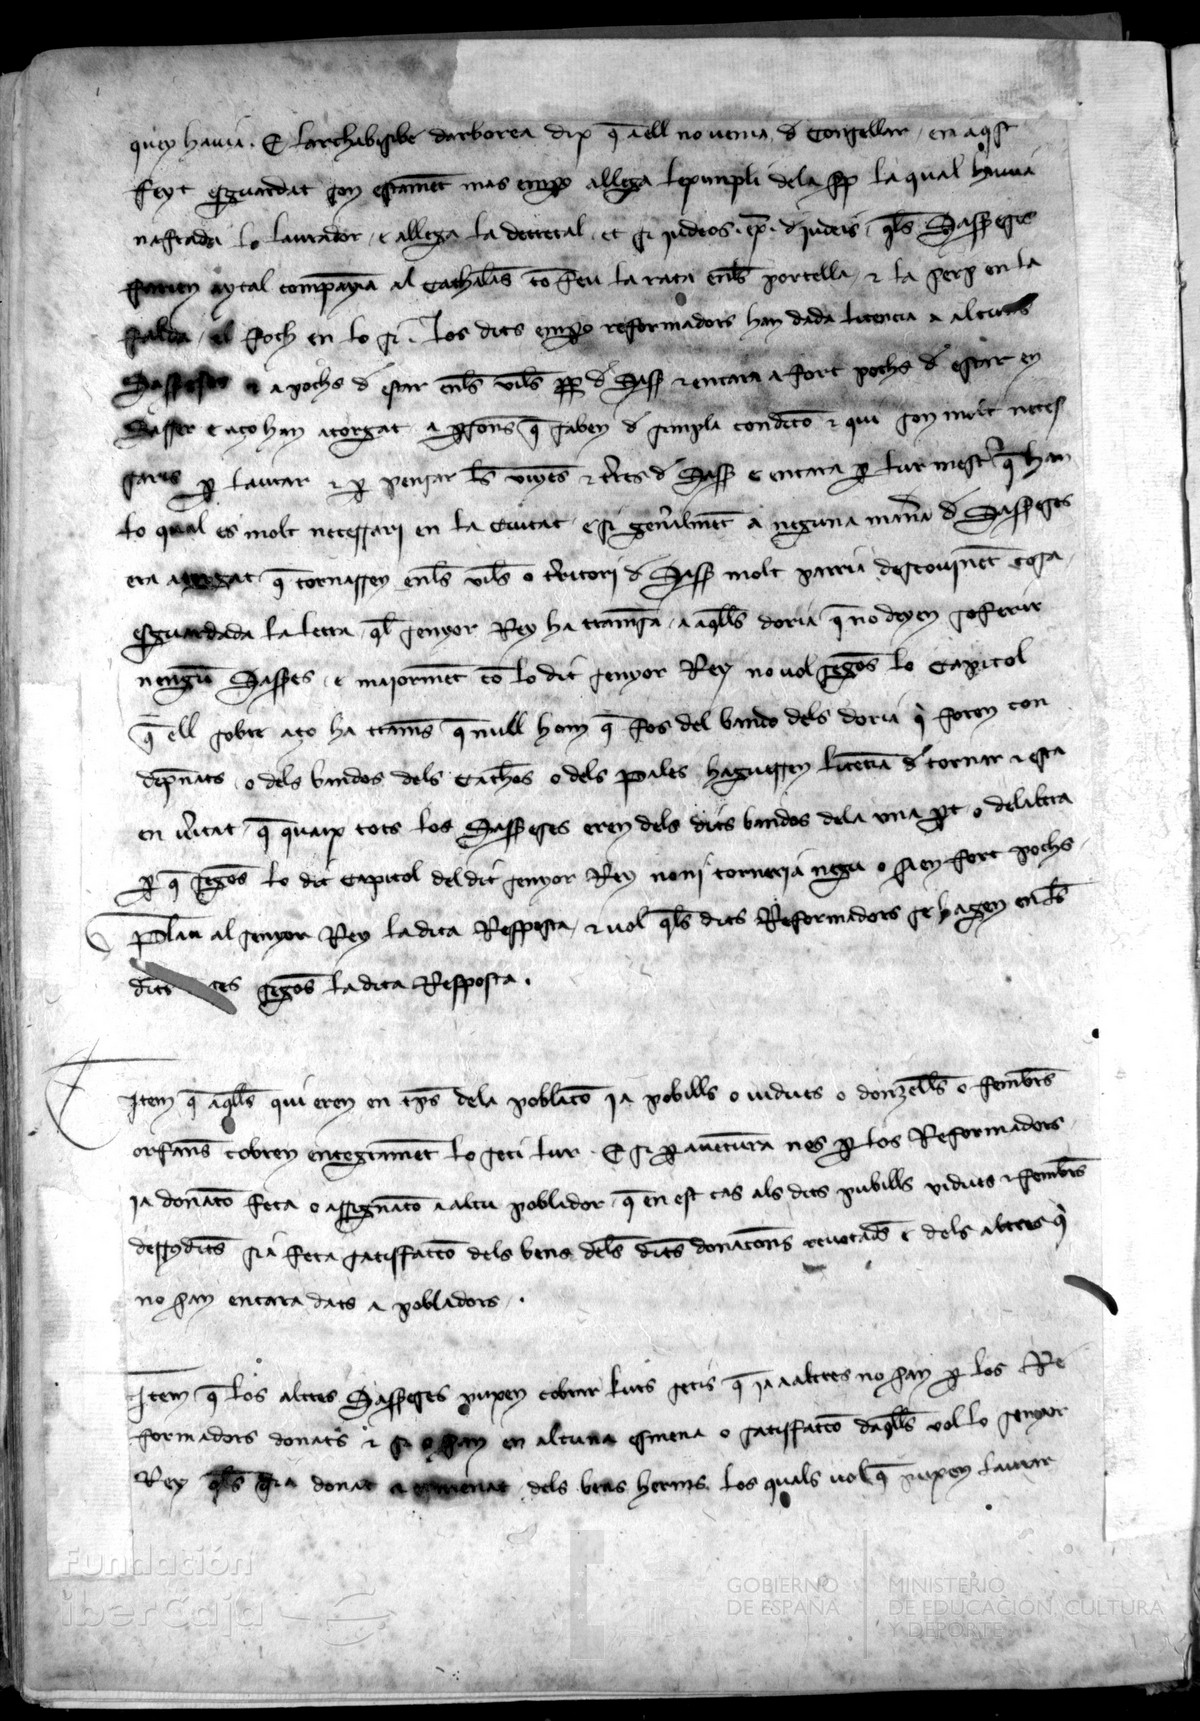 quey havia. E larchabisbe darborea dix q̄ aell no venia d Consellar en aq̄st
feyt esguardat son estament mas emꝑo allega leximpli dela sꝑ la qual havia
nafrada lo laurador e allega la decretal et si judeos. ex̄. d judeis q̄ls Sassẽses
farien aytal companyia al Cathalās cō feu la rata enl̄s portella ⁊ la serp en la
falda el foch en lo si. Los dits emꝑo reformadors han dada licencia a alcuns
Sasseses ⁊ a pochs d estar enl̄s vil̄s ꝓp d Sass ⁊ encara a fort pochs d estar en
Sasser e aço han atorgat a ꝑsons q̄ saben d simpla condicō ⁊ qui son molt neces
saris ꝑ laurar ⁊ ꝑ pensar l̄s vinyes ⁊ t̄res d Sass e encara ꝑ lur mest̄ q̄ han
lo qual es molt necessari en la Ciutat e si gen̄alment a neguna man̄a d Sasseses
era atorgat q̄ tornassen enl̄s vil̄s o t̄ritori d Sass molt parria descovinēt cosa
esguardada la letra q̄l senyor Rey ha tramesa a aq̄lls doria q̄ no deyen soferir
nengū Sasses e maiorment cō lo dit senyor Rey no vol segōs lo Capitol
q̄ ell sobre aço ha tramis q̄ null hom q̄ fos del bando dels doria q̄ foren con
dēpnats o dels bandos dels Cathōs o dels Pales haguessen licēcia d tornar ⁊ esta
en v̄itat q̄ quaix tots los Sasseses eren dels dits bandos dela una ꝑt o delaltra
ꝑ q̄ segōs lo dit Capitol del dit senyor Rey noni tornaria negu o sien fort pochs
Plau al senyor Rey la dita Resposta ⁊ vol q̄ls dits Reformadors se hagen enl̄s
dits segōs la dita Resposta.
Item q̄ aq̄lls qui eren en tp̄s dela poblacō ja pobills o vidues o donzell̄s o fembr̄s
orfan̄s cobren entegrament lo seti lur. E si ꝑ aventura nes ꝑ los Reformadors
ja donacō feta o assignacō a alcu poblador q̄ en est cas als dits pubills vidues ⁊ fembr̄s
dessusdit̄s sia feta satisfaccō dels bens del̄s dit̄s donacōns revocad̄s e dels altres q̄
no san encara dats a pobladors.
Item q̄ los altres Sasseses puxen cobrar lurs setis q̄ ja a altres no san ꝑ los Re
formadors donats ⁊ si o san en alcuna esmena o satisfaccō daq̄lls vol lo senyor
Rey q̄ls sia donat dels bens herms los quals vol q̄ puxen laurar
Fundación
iberCaja
GOBIERNO
DE ESPAÑA
MINISTERIO
DE EDUCACIÓN, CULTURA
Y DEPORTE